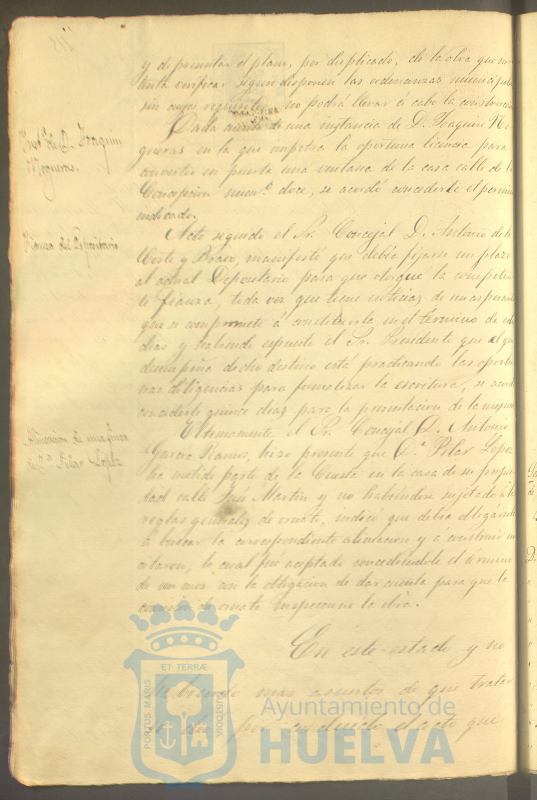 y de presentar el plano, por duplicado, de la obra que
tenta verificar segun disponen las ordenanzas
sin cuyo requisito no podrá llevar á cabo la
Inst.ª de D. Joaquin
Nogueras.
Dada cuenta de una instancia de D. Joaquin No
gueras en la que impetra la oportuna licencia para
convertir en puerta una ventana de la casa calle de
Concepcion num.º doce, se acordó concederle el
indicado.
Fianza del Depositario
Acto seguido el Sr. Concejal D. Antonio de la
Corte y Bravo, manifestó que debia fijarse un plazo
al actual Depositario para que otorgue la
te fianza, toda vez que tiene noticias de un
que se compromete á constituirla en el término de
dias y habiendo espuesto el Sr. Presidente que el que
desempeña dicho destino está practicando las
nas diligencias para formalizar la escritura, se
concederle quince dias para la presentacion de la misma
Alineacion de una finca
de D.ª Pilar Lopez
Ultimamente el Sr. Concejal D. Antonio
Garcia Ramos, hizo presente que D.ª Pilar Lopez
ha metido parte de la Cuesta en la casa de su propie
dad calle San Martin y no habiendose sujetado á
reglas generales de ornato, indicó que debia
á buscar la correspondiente alineacion y á construir
lo cual fué aceptado concediendole el término
de un mes con la obligacion de dar cuenta para que la
comision de ornato inspeccione la obra.
En este estado y no
habiendo mas asuntos de que tratar
se dió por concluido el acto que
PORTUS MARIS
ET TERRÆ
CUSTODIA
Ayuntamiento de
HUELVA